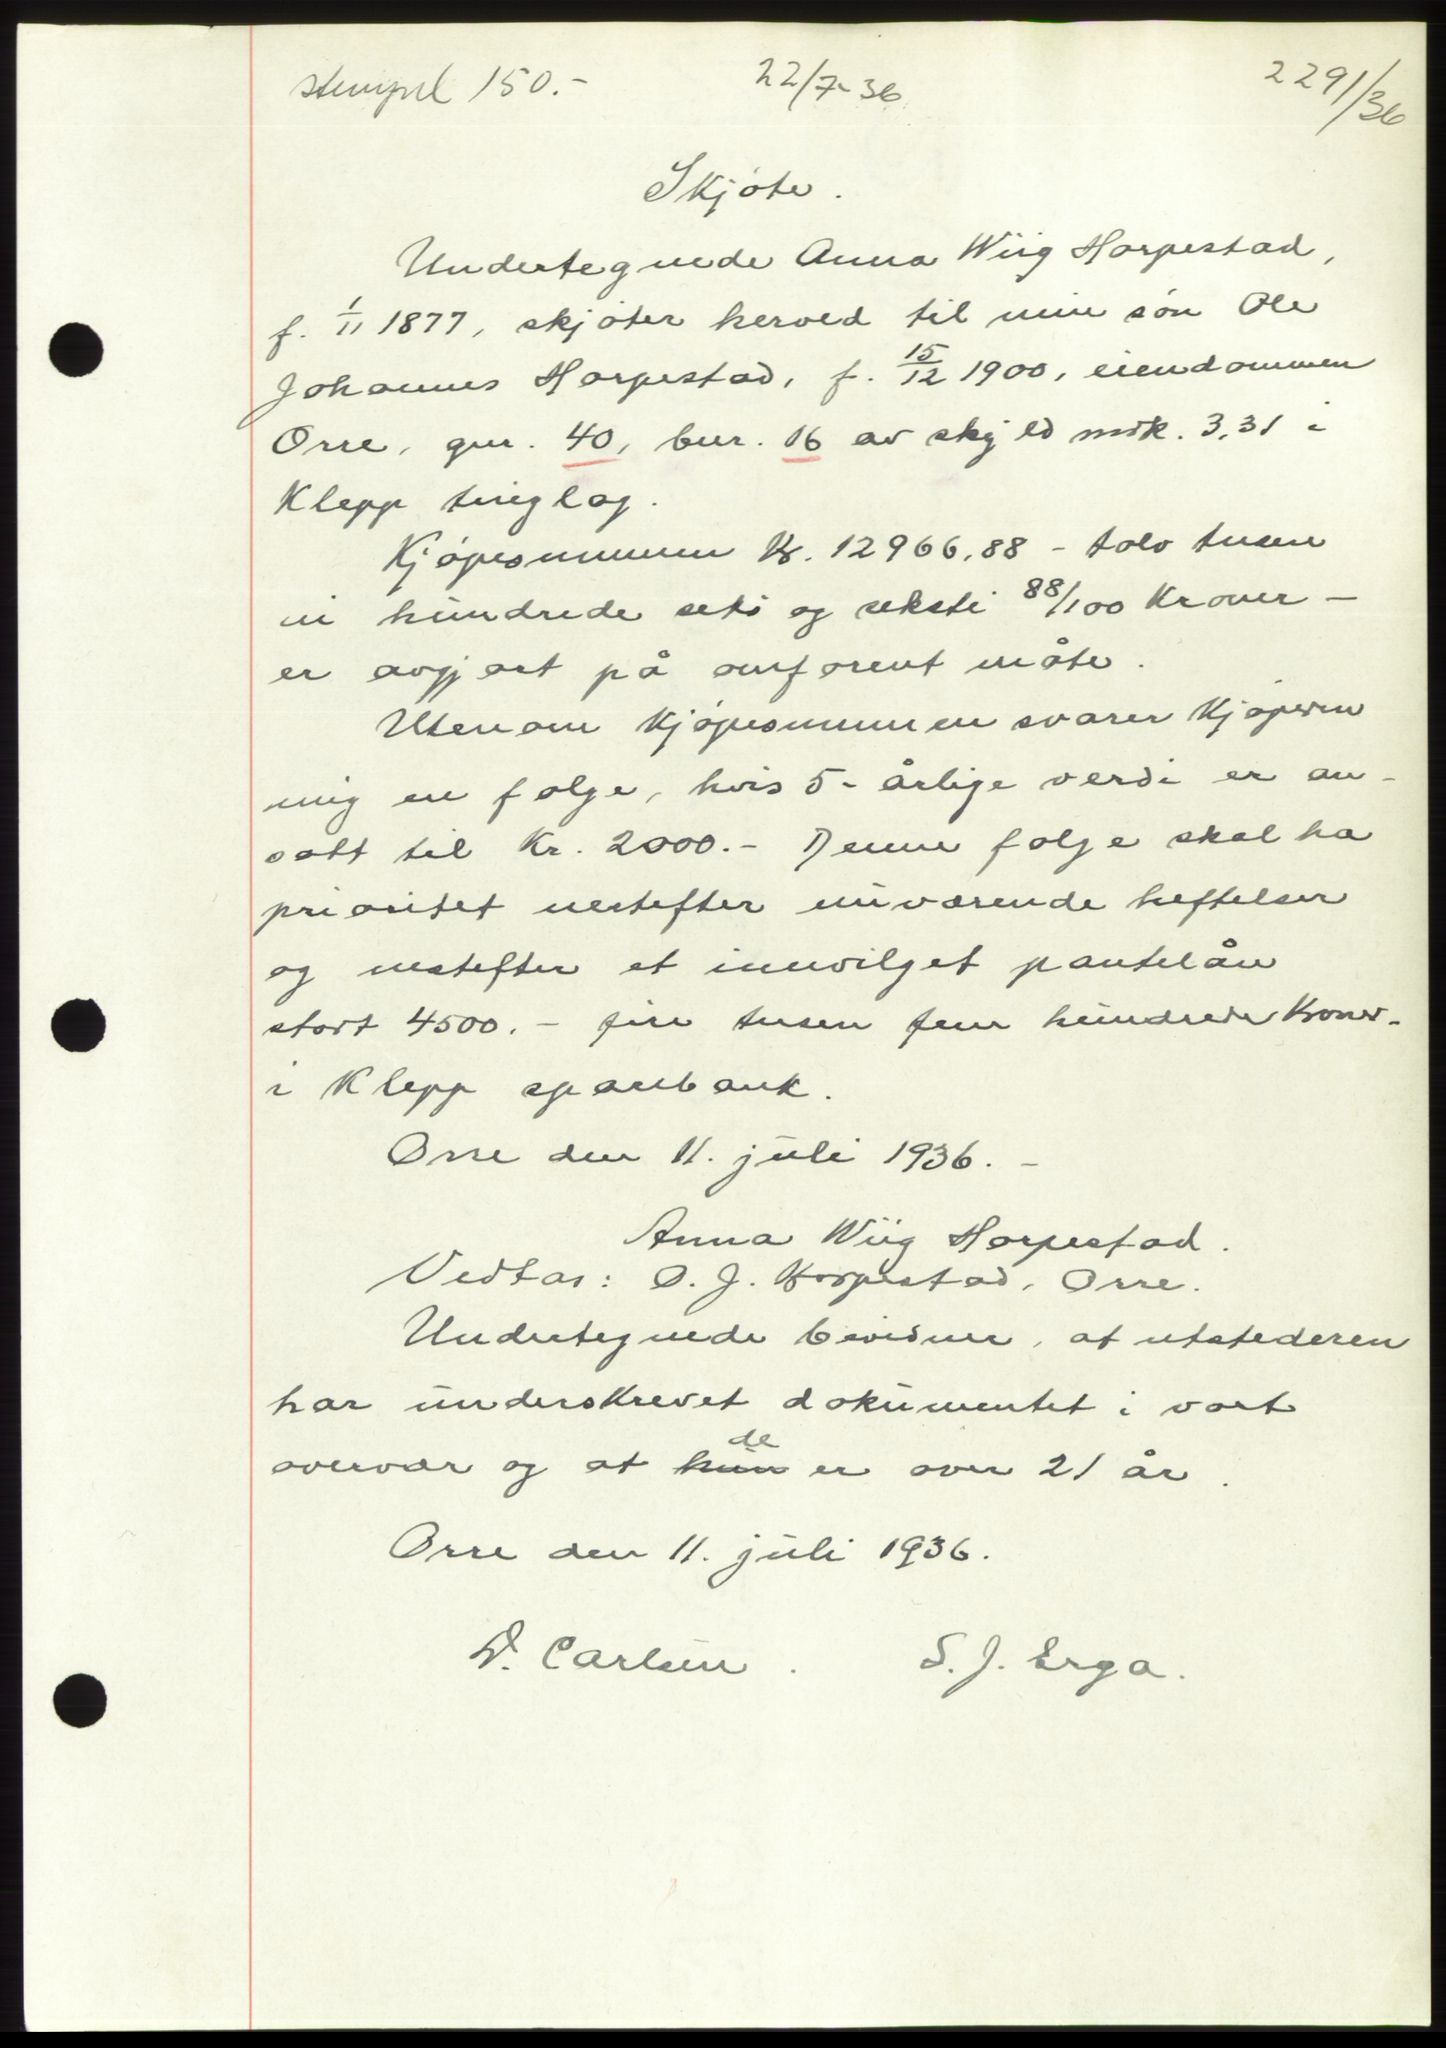 stempel 150.-
22/7-36
2291/36
Skjøte.
Undertegnede Anna Wiig Horpestad,
f. 1/11 1877, skjøter herved til min søn Ole
Johannes Horpestad, f. 15/12 1900, eiendommen
Orre, gnr. 40, bnr. 16 av skyld mrk. 3,31 i
Klepp tinglag.
Kjøpesummen Kr. 12966,88 - tolv tusen
ni hundrede seks og seksti 88/100 Kroner -
er avgjort på omforent måte.
Utenom Kjøpesummen svarer Kjøperen
mig en følge, hvis 5-årlige verdi er an-
satt til Kr. 2000.- Denne følge skal ha
prioritet nestefter nuværende heftelser
og nestefter et innvilget pantelån
stort 4500.- fire tusen fem hundrede Kroner-
i Klepp sparebank.
Orre den 11. juli 1936.-
Anna Wiig Horpestad.
Vedtas: O. J. Horpestad, Orre.
Undertegnede bevidner, at utstederen
har underskrevet dokumentet i vort
overvær og at hun de er over 21 år.
Orre den 11. juli 1936.
D. Carlsen. S. J. Erga.